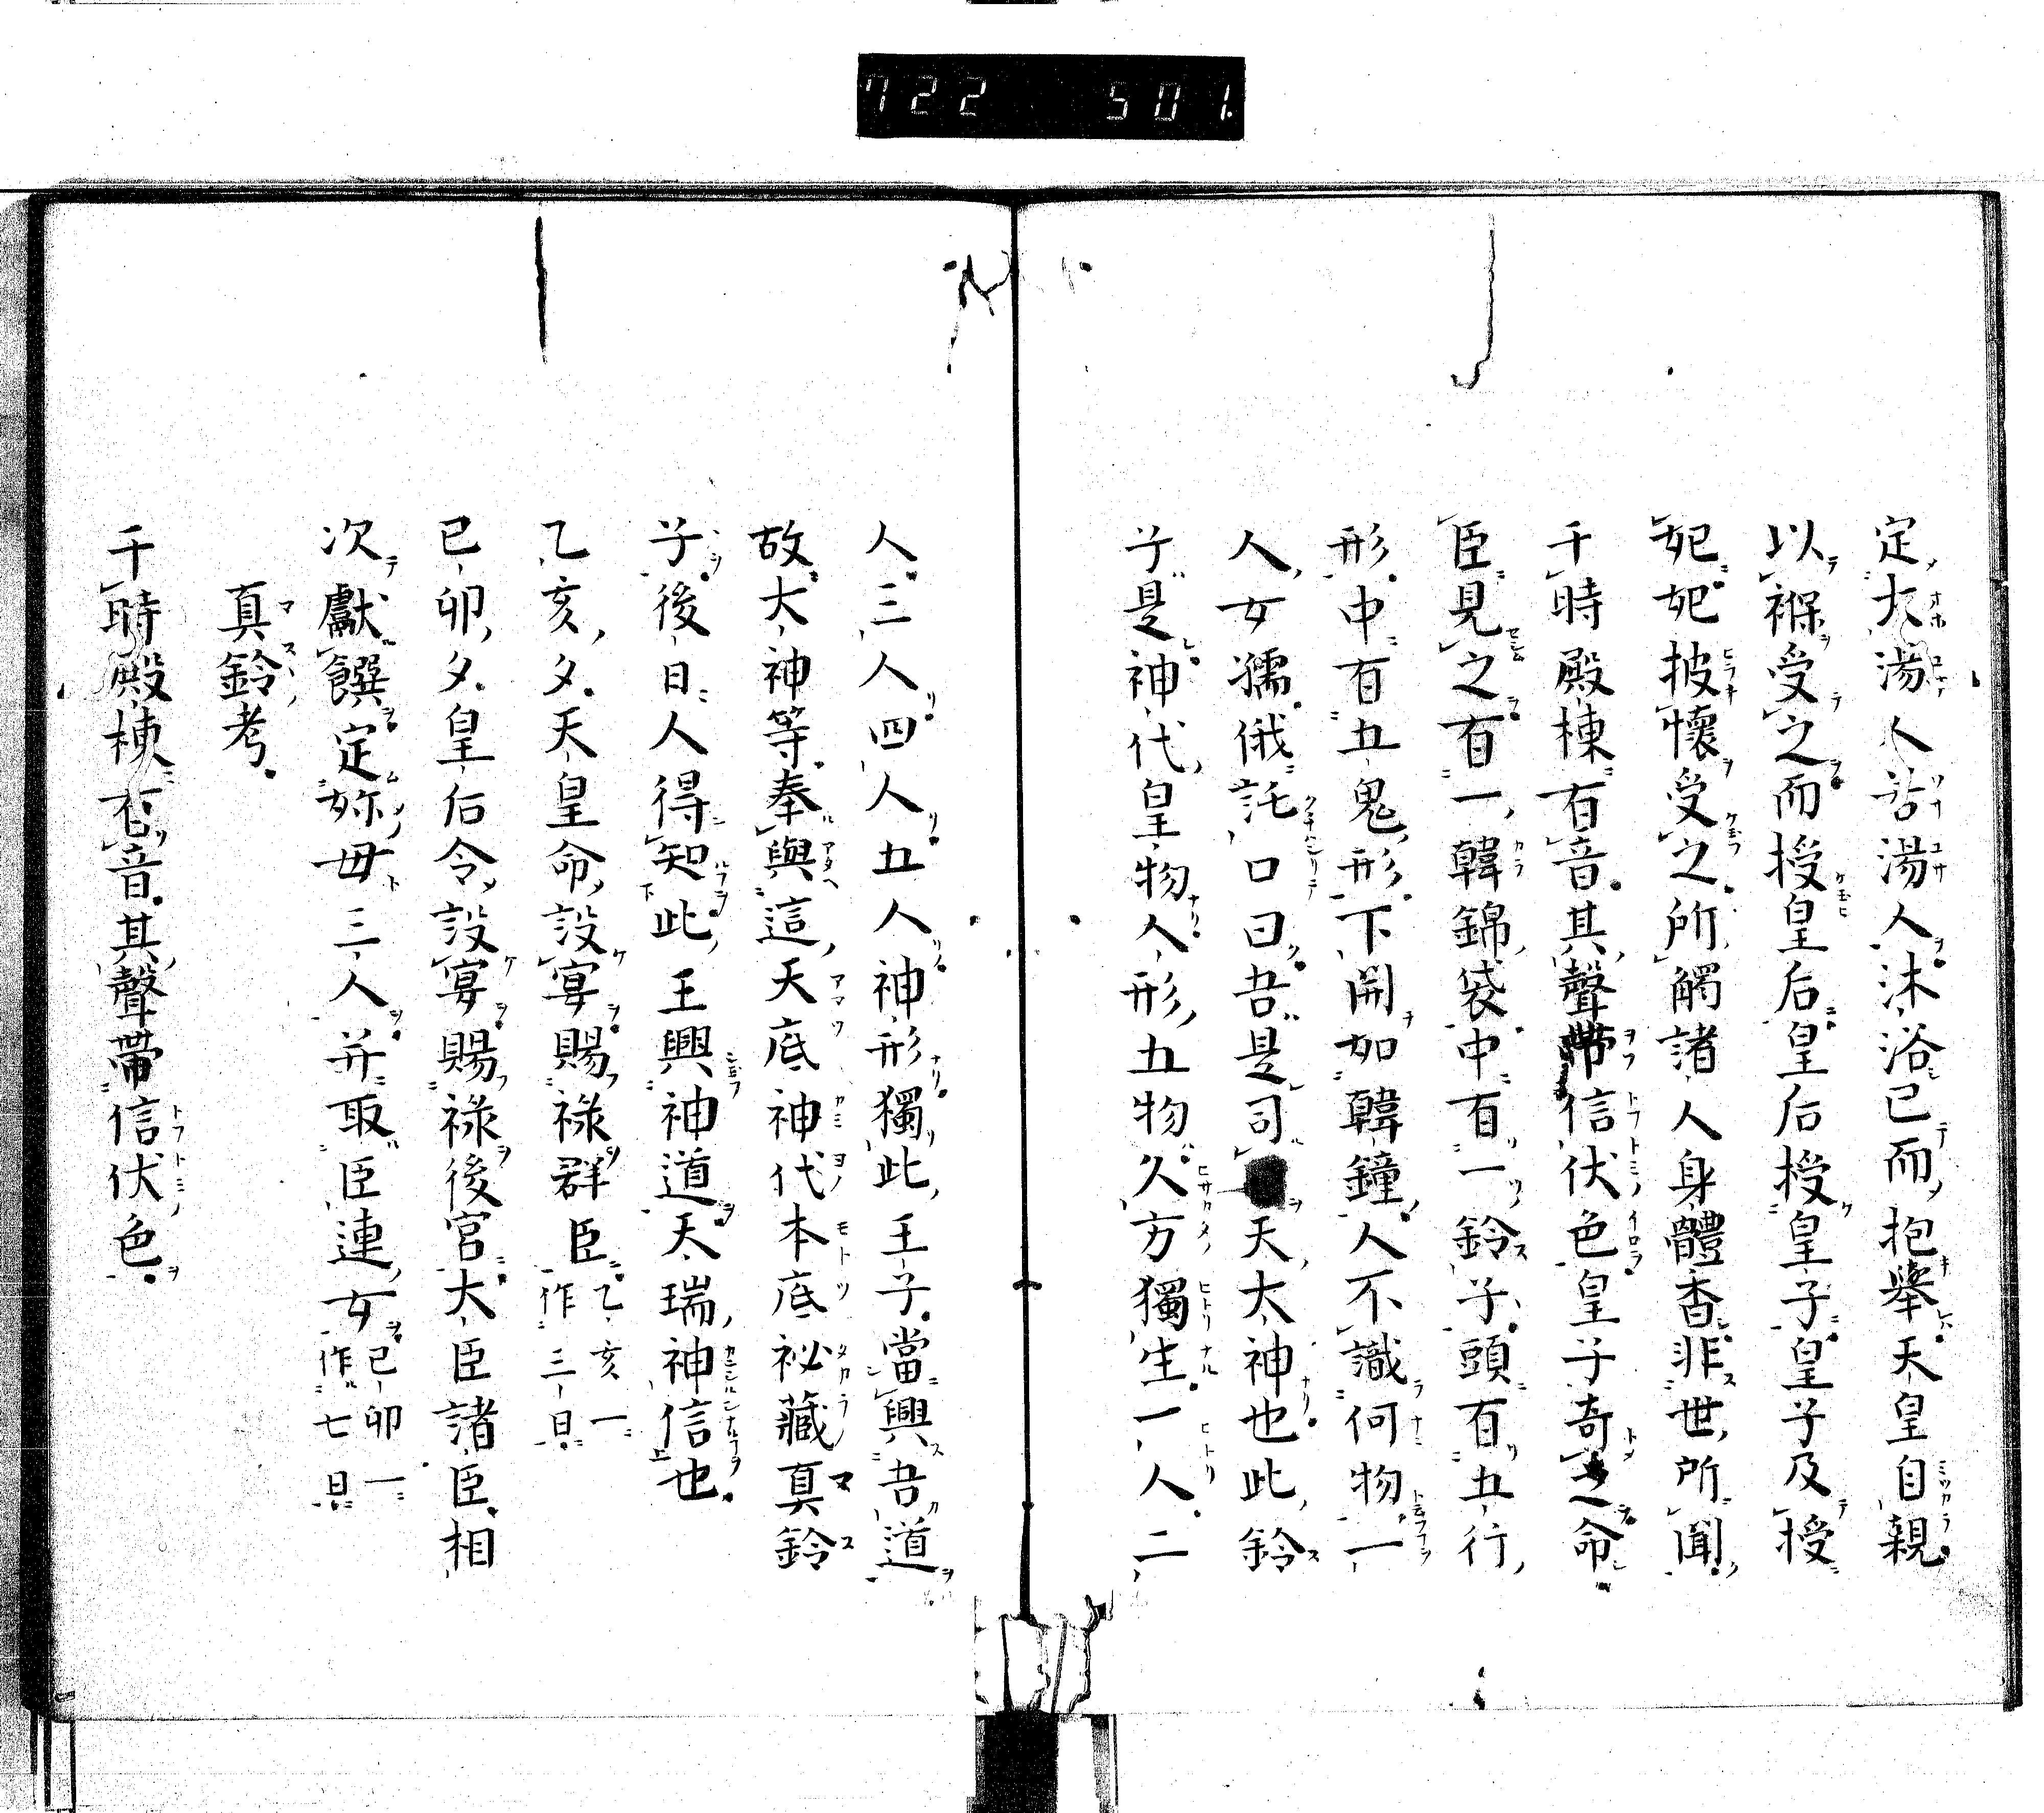 722 501
定大湯人沾湯人沐浴已而抱擧天皇自親
以褓受之而授皇后皇后授皇子皇子及授
妃妃披懷受之所觸諸人身體香非世所聞
于時殿棟有音其聲帶信伏色皇子奇之命
臣見之有一韓錦袋中有一鈴子頭有五行
形中有五鬼形下開如韓鐘人不識何物一
人女孺俄託口曰吾是司天大神也此鈴
子是神代皇物人形五物久方獨生一人二
人三人四人五人神形獨此王子當興吾道
故大神等奉與這天底神代本底祕藏真鈴
子後日人得知此王興神道天瑞神信也
乙亥夕天皇命設宴賜祿群臣乙亥一作三日
已卯夕皇后令設宴賜祿後宮大臣諸臣相
次獻饌定妳毋三人并取臣連女已卯一作七日
真鈴考
于時殿棟有音其聲帶信伏色